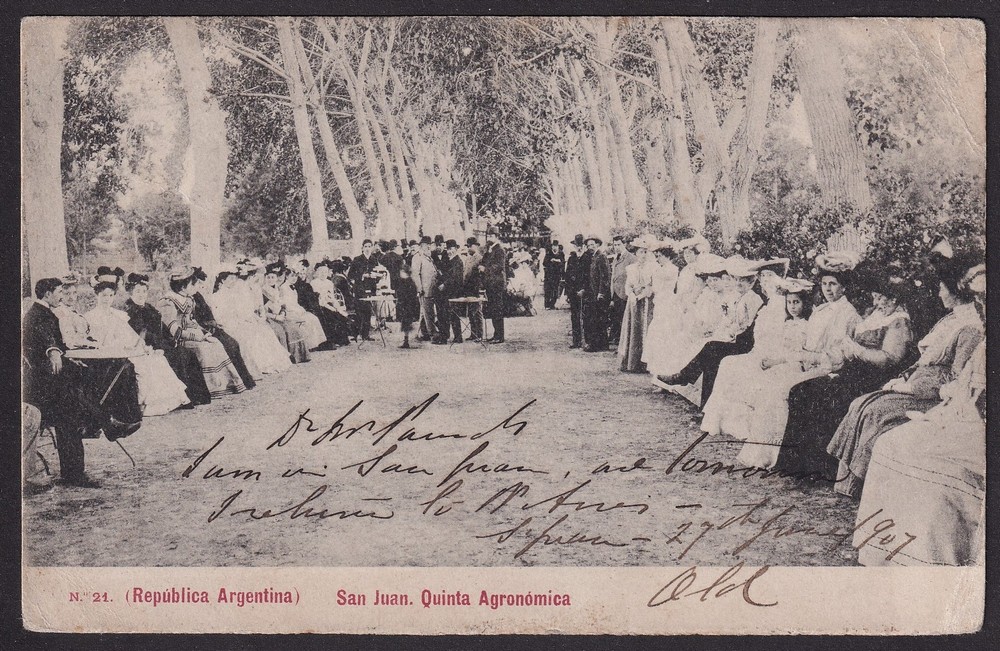 Dr Mr
I am in San Juan, and tomorrow
I return to Bs Aires —
S Juan — 27th June/907
N.º 21. (República Argentina) San Juan. Quinta Agronómica